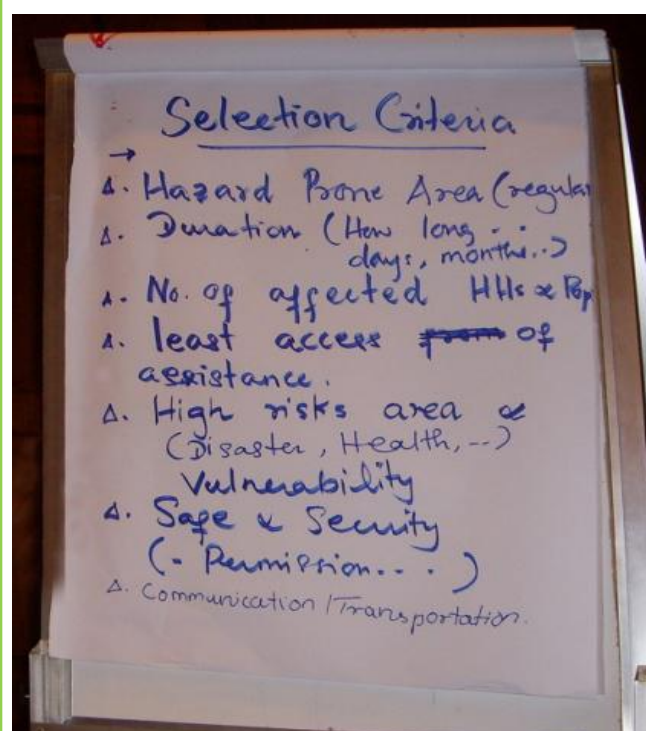 Selection Criteria
→
Δ. Hazard Prone Area (regular
Δ. Duration (How long . .
days, months..)
Δ. No. of affected HHs & Pop
Δ. least access of
assistance.
Δ. High risks area &
(Disaster, Health, --)
Vulnerability
Δ. Safe & Security
(- Permission. . . )
Δ. Communication / Transportation.